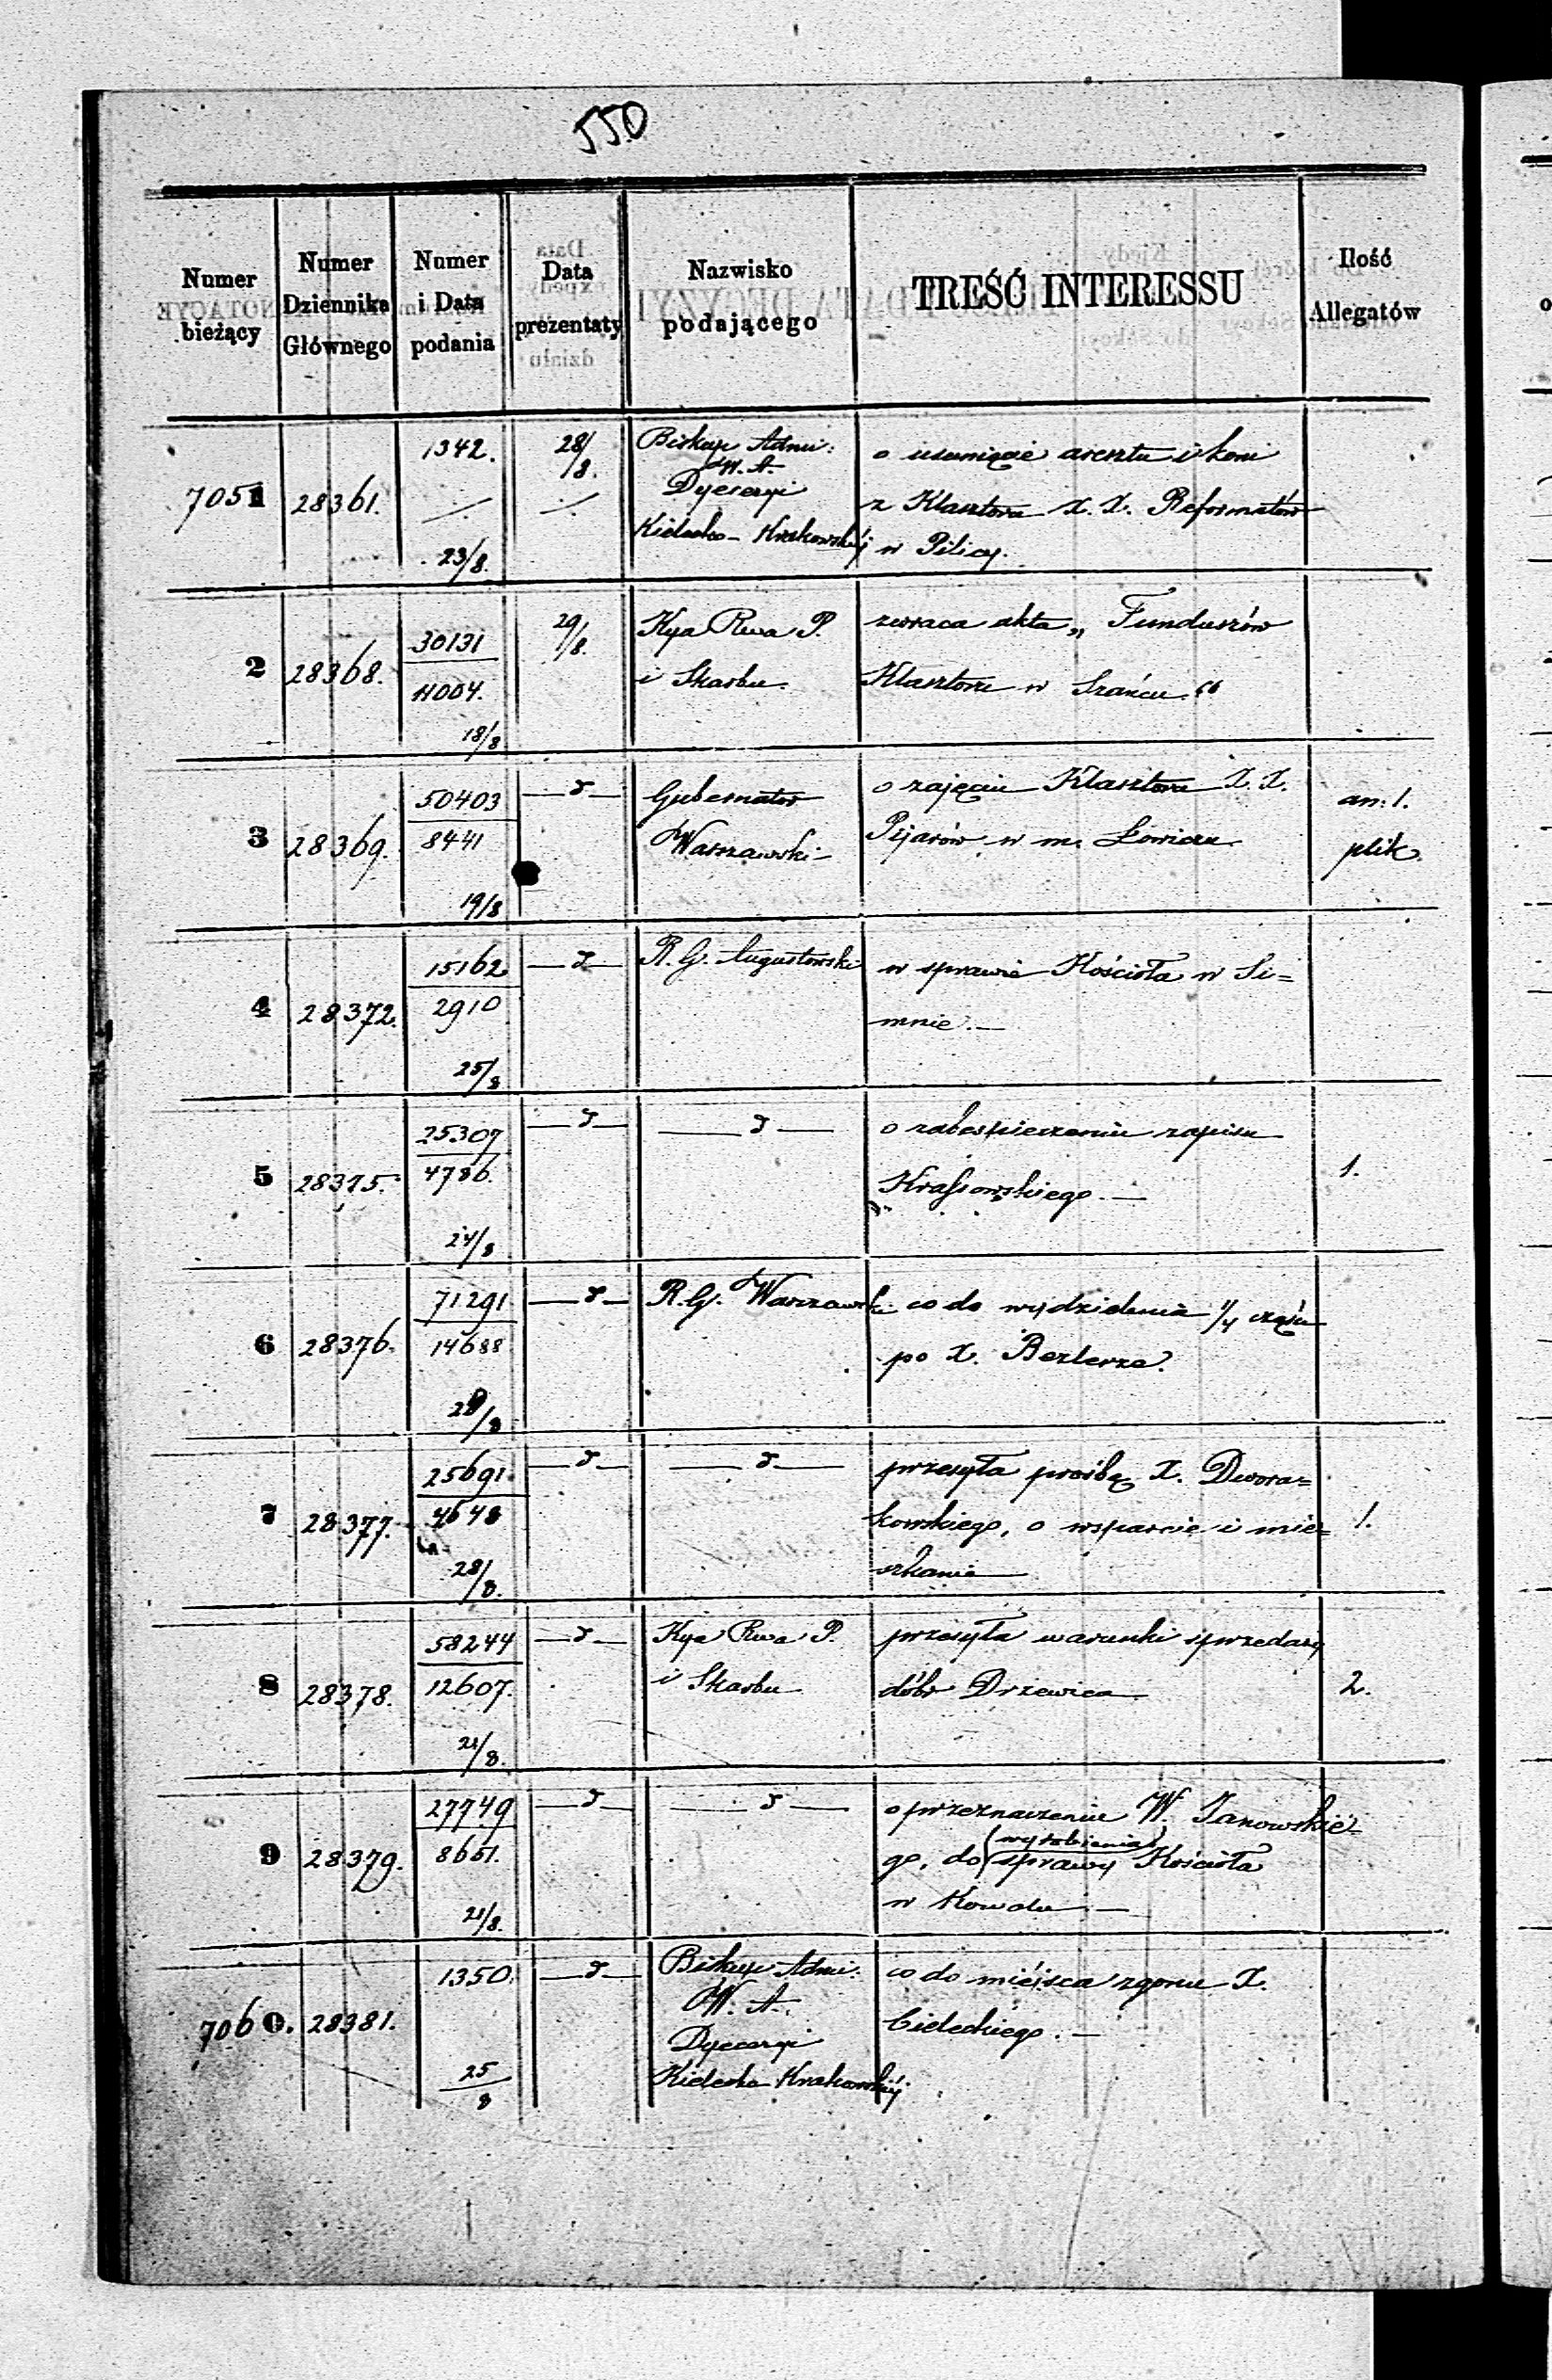 550
Numer bieżący
Numer Dziennika Głównego
Numer i Data podania
Data prezentaty
Nazwisko podającego
TREŚĆ INTERESSU
Ilość Allegatów
7051 28361. 1342. 23/8. 28/8. Biskup Admi: W. A. Dyecezyi Kielecko-Krakowskiéj
o usunięcie aresztu i koni
z Klasztora X. X. Reformatów
w Pilicy.
2 28368. 30131 11004. 18/8 29/8. Kya Rwa P. i Skarbu.
zwraca akta „Funduszów
Klasztoru w Szańcu.“
3 28369. 50403 8441 19/8 — d — Gubernator Warszawski
o zajęciu Klasztora X. X.
Pijarów w m. Łowiczu
an: 1. plik.
4 28372. 15162 2910 25/8 — d — R. G. Augustowski
w sprawie Kościoła w Si=
mnie. —
5 28375. 25307 4786. 24/8 — d — — d —
o zabespieczeniu zapisu
Krassowskiego. —
1.
6 28376. 71291 14688 28/8 — d — R. G. Warszawski
co do wydzielenia 1/4 części
po X. Bezlerze.
7 28377. 25691. 4648 28/8. — d — — d —
przesyła prośbę X. Dwora=
kowskiego, o wsparcie i mie=
szkanie
1.
8 28378. 58244 12607. 21/8. — d — Kya Rwa P. i Skarbu
przesyła warunki sprzedaży
dóbr Drzewica
2.
9 28379. 27749 8651. 21/8. — d — — d —
o przeznaczeniu W. Janowskie=
go, do (wyrobienia) sprawy Kościoła
w Kowalu —
7060. 28381. 1350. 25/8 — d — Biskup Admi: W. A. Dyecezyi Kielecko Krakowskiéj
co do miéjsca zgonu X.
Cieleckiego. —